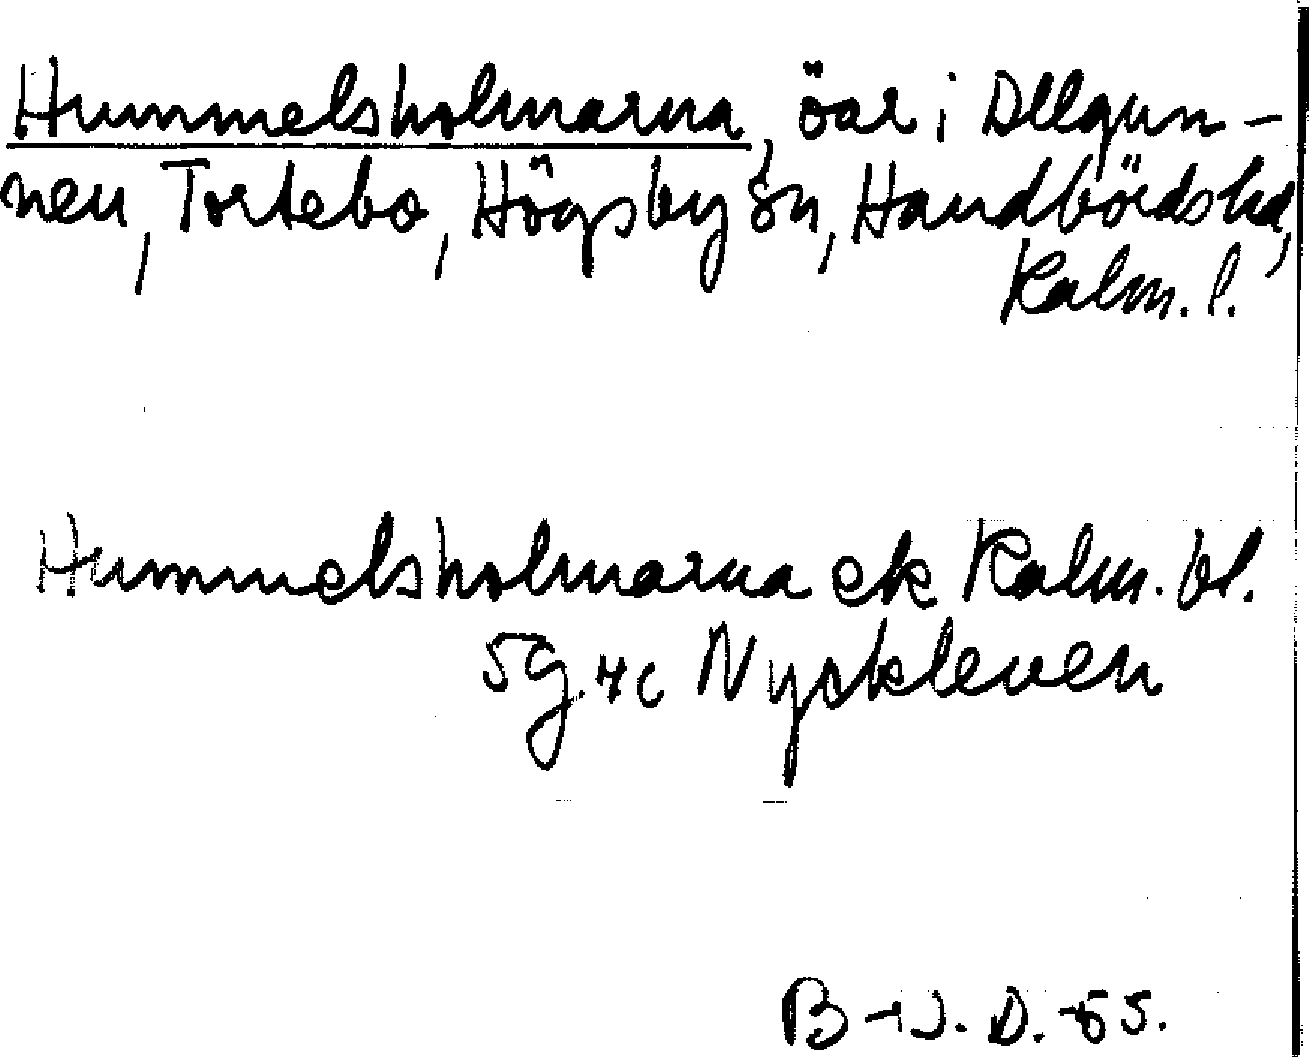 Hummelsholmarna, öar i Allgun-
nen, Tortebo, Högsby sn, Handbördshd,
Kalm. l.
Hummelsholmarna ek Kalm. bl.
5g. 4c Nyckleven
B-J. D. -65.